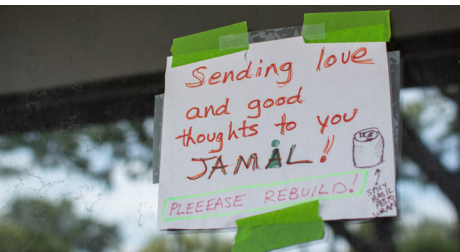 Sending love
and good
thoughts to you
JAMAL!!
PLEEEASE REBUILD!